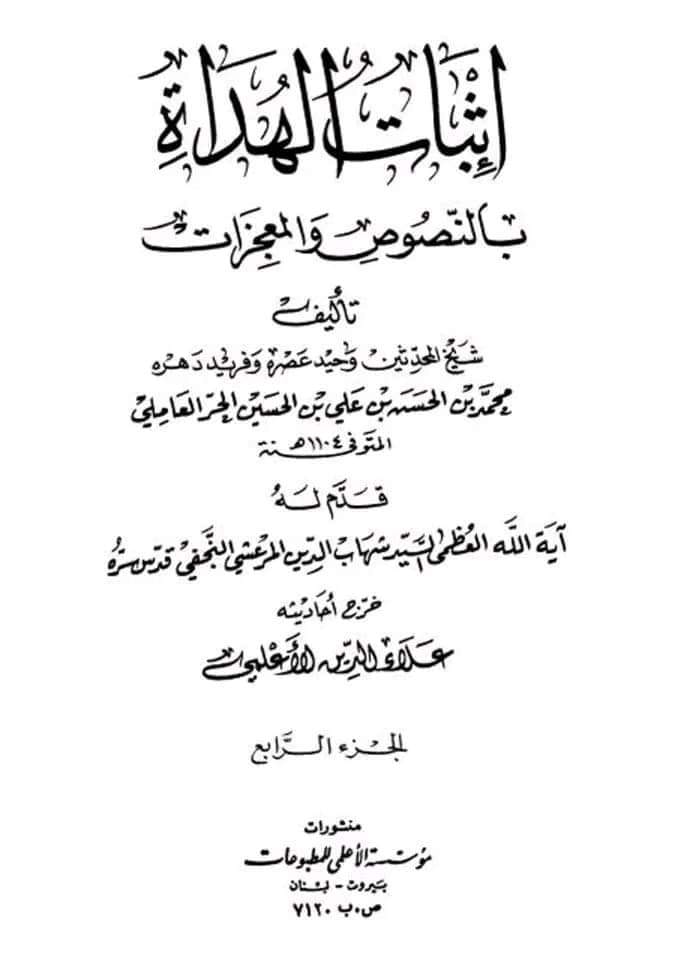 إِثْبَاتُ الهُدَاةِ
بِالنّصُوصِ وَالمُعجِزَات
تأليف
شَيْخ المحدّثين وَحيد عَصْرِه وَفريْد دَهره
محمّد بن الحسَن بن عَلي بن الحسَين الحرّ العَاملي
المتَوفى سنة ١١٠٤هـ
قَدَّم لَهُ
آيَة اللَّه العُظمى السَّيّد شهَاب الدِّين المرعَشي النَّجَفي قدّس سرّهُ
خرّج أحَاديثه
عَلَاء الدِّين الأَعْلمي
الجُزء الرَّابع
منشورات
مؤسّسة الأعلمي للمطبوعات
بَيروت - لبْنان
ص.ب ٧١٢٠